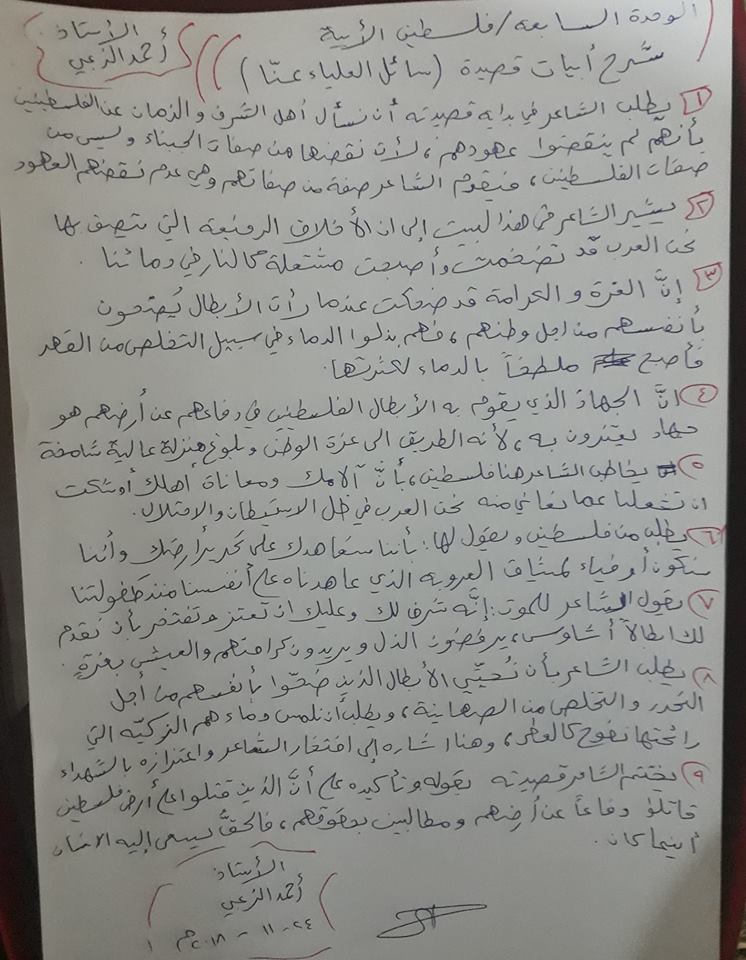 الوحدة السابعة / فلسطين الأبية
الأستاذ
أحمد الزعبي
شرح أبيات قصيدة (سائل العلياء عنّا)
١ يطلب الشاعر في بداية قصيدته أن نسأل أهل الشرف والزمان عن الفلسطينين
بأنهم لم ينقضوا عهودهم، لأن نقضها من صفات الجبناء وليس من
صفات الفلسطين، فيقوم الشاعر صفة من صفاتهم وهي عدم نقضهم العهود
٢ يشير الشاعر في هذا البيت إلى ان الأخلاق الرفيعة التي يتصف بها
نحن العرب قد تضخمت وأصبحت مشتعلة كالنار في دمائنا.
٣ إنَّ العزة والكرامة قد ضحكت عندما رأت الأبطال يُضحون
بأنفسهم من اجل وطنهم، فهم بذلوا الدماء في سبيل التخلص من القهر
فأصبح ملطخاً بالدماء لكثرتها.
٤ انَّ الجهاد الذي يقوم به الأبطال الفلسطيني في دفاعهم عن أرضهم هو
جهاد يعتزون به، لأنه الطريق الى عزة الوطن وبلوغ منزلة عالية شامخة
٥ يخاطب الشاعر هنا فلسطين، بأنَّ آلامك ومعاناة أهلك أوشكت
ان تشغلنا عما نعاني منه نحن العرب في ظل الاستيطان والاحتلال.
٦ يطلب من فلسطين ويقول لها: بأننا سنعاهدك على تحرير أرضك وأننا
سنكون أوفياء لميثاق العروبة الذي عاهدناه على أنفسنا منذ طفولتنا
٧ يقول الشاعر للموت: إنَّه شرف لك وعليك ان تعتز وتفتخر بأن نقدم
لك ابطالاً أشاوس، يرفضون الذل ويريدون كرامتهم والعيش بعزةٍ.
٨ يطلب الشاعر بأن نُحيّي الأبطال الذين ضحّوا بأنفسهم من أجل
التحرر والتخلص من الصهاينة، ويطلب أن نلمس دماءهم الزكيّة التي
رائحتها تفوح كالعطر، وهنا اشاره إلى افتخار الشاعر واعتزازه بالشهداء
٩ يختتم الشاعر قصيدته بقوله وتأكيده على أنَّ الذين قتلوا على أرض فلسطين
قاتلوا دفاعاً عن أرضهم ومطالبين بحقوقهم، فالحقُّ يسعى إليه الانسان
أينما كان.
الأستاذ
أحمد الزعبي
٢٤ - ١١ - ٢٠١٨م